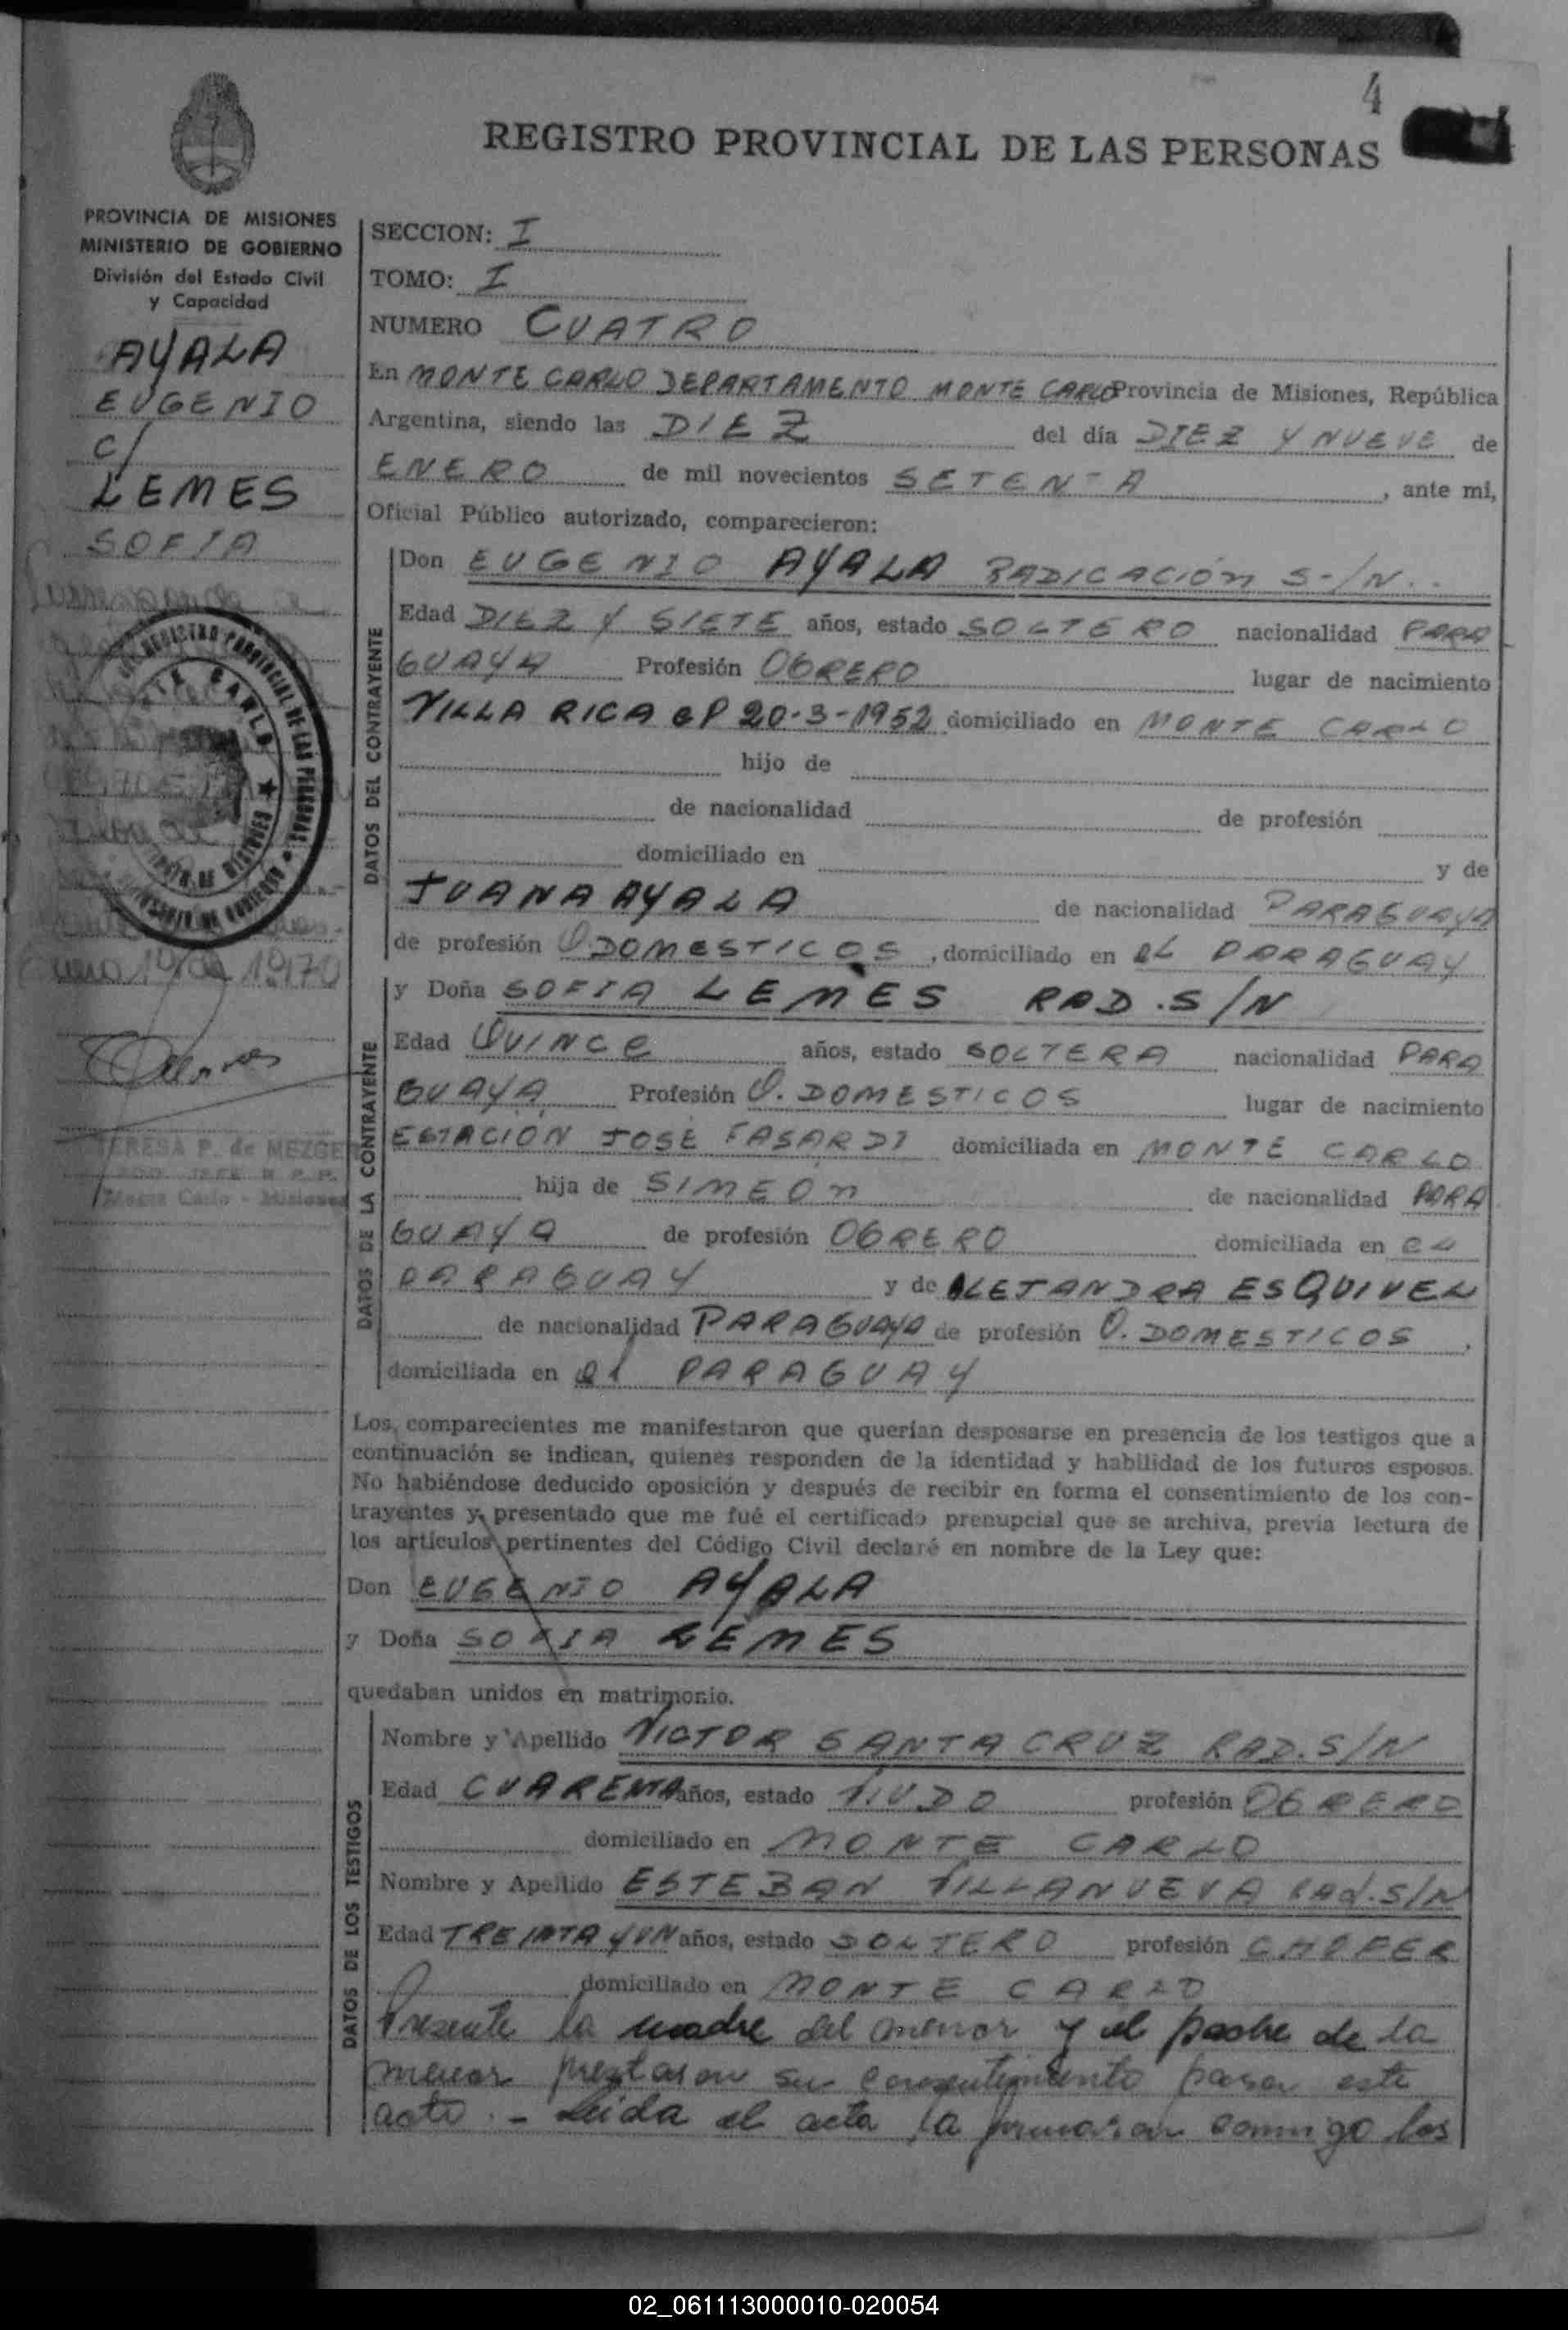 4
REGISTRO PROVINCIAL DE LAS PERSONAS
PROVINCIA DE MISIONES
MINISTERIO DE GOBIERNO
División del Estado Civil
y Capacidad
AYALA
EUGENIO
c/
LEMES
SOFIA
Enero 19 de 1970
TERESA P. de MEZGER
Monte Carlo - Misiones
SECCION: I
TOMO: I
NUMERO CUATRO
En MONTE CARLO DEPARTAMENTO MONTE CARLO Provincia de Misiones, República
Argentina, siendo las DIEZ del día DIEZ Y NUEVE de
ENERO de mil novecientos SETENTA, ante mi,
Oficial Público autorizado, comparecieron:
DATOS DEL CONTRAYENTE
Don EUGENIO AYALA RADICACIÓN S-/N..
Edad DIEZ Y SIETE años, estado SOLTERO nacionalidad PARA
GUAYA Profesión OBRERO lugar de nacimiento
VILLA RICA eP 20-3-1952 domiciliado en MONTE CARLO
hijo de
de nacionalidad de profesión
domiciliado en y de
JUANA AYALA de nacionalidad PARAGUAYA
de profesión Q.DOMESTICOS, domiciliado en eL PARAGUAY
DATOS DE LA CONTRAYENTE
y Doña SOFIA LEMES RAD.S/N
Edad QUINCe años, estado SOLTERA nacionalidad PARA
GUAYA Profesión Q. DOMESTICOS lugar de nacimiento
ESTACION JOSE FASARDI domiciliada en MONTE CARLO
hija de SIMEON de nacionalidad PARA
GUAYA de profesión OBRERO domiciliada en eL
PARAGUAY y de ALEJANDRA ESQUIVEL
de nacionalidad PARAGUAYA de profesión Q. DOMESTICOS,
domiciliada en el PARAGUAY
Los comparecientes me manifestaron que querían desposarse en presencia de los testigos que a
continuación se indican, quienes responden de la identidad y habilidad de los futuros esposos.
No habiéndose deducido oposición y después de recibir en forma el consentimiento de los con-
trayentes y presentado que me fué el certificado prenupcial que se archiva, previa lectura de
los artículos pertinentes del Código Civil declaré en nombre de la Ley que:
Don EUGENIO AYALA
y Doña SOFIA LEMES
quedaban unidos en matrimonio.
DATOS DE LOS TESTIGOS
Nombre y Apellido VICTOR SANTA CRUZ RAD.S/N
Edad CUARENTA años, estado VIUDO profesión OBRERO
domiciliado en MONTE CARLO
Nombre y Apellido ESTEBAN VILLANUEVA RAD.S/N
Edad TREINTA YUN años, estado SOLTERO profesión CHOFER
domiciliado en MONTE CARLO
Presente la madre del menor y el padre de la
menor prestaron su consentimiento para este
acto.- Leida el acta la firmaron conmigo los
02_061113000010-020054